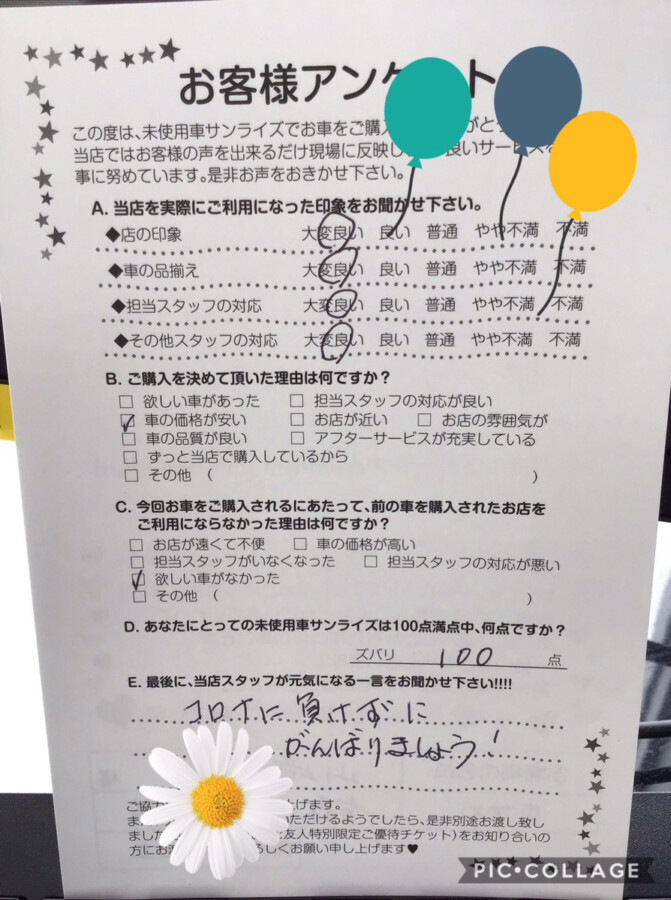 お客様アンケート
この度は、未使用車サンライズでお車をご購入
当店ではお客様の声を出来るだけ現場に反映し 良いサービスを
事に努めています。是非お声をおきかせ下さい。
A. 当店を実際にご利用になった印象をお聞かせ下さい。
◆店の印象 大変良い 良い 普通 やや不満 不満
◆車の品揃え 大変良い 良い 普通 やや不満 不満
◆担当スタッフの対応 大変良い 良い 普通 やや不満 不満
◆その他スタッフの対応 大変良い 良い 普通 やや不満 不満
B. ご購入を決めて頂いた理由は何ですか?
□ 欲しい車があった □ 担当スタッフの対応が良い
☑ 車の価格が安い □ お店が近い □ お店の雰囲気が
□ 車の品質が良い □ アフターサービスが充実している
□ ずっと当店で購入しているから
□ その他 ( )
C. 今回お車をご購入されるにあたって、前の車を購入されたお店を
ご利用にならなかった理由は何ですか?
□ お店が遠くて不便 □ 車の価格が高い
□ 担当スタッフがいなくなった □ 担当スタッフの対応が悪い
☑ 欲しい車がなかった
□ その他 ( )
D. あなたにとっての未使用車サンライズは100点満点中、何点ですか?
ズバリ 100 点
E. 最後に、当店スタッフが元気になる一言をお聞かせ下さい!!!!
コロナに負けずに
がんばりましょう!
ご協力 上げます。
ま いただけるようでしたら、是非別途お渡し致し
ました 友人特別限定ご優待チケット)をお知り合いの
方にお しくお願い申し上げます♥
PIC•COLLAGE